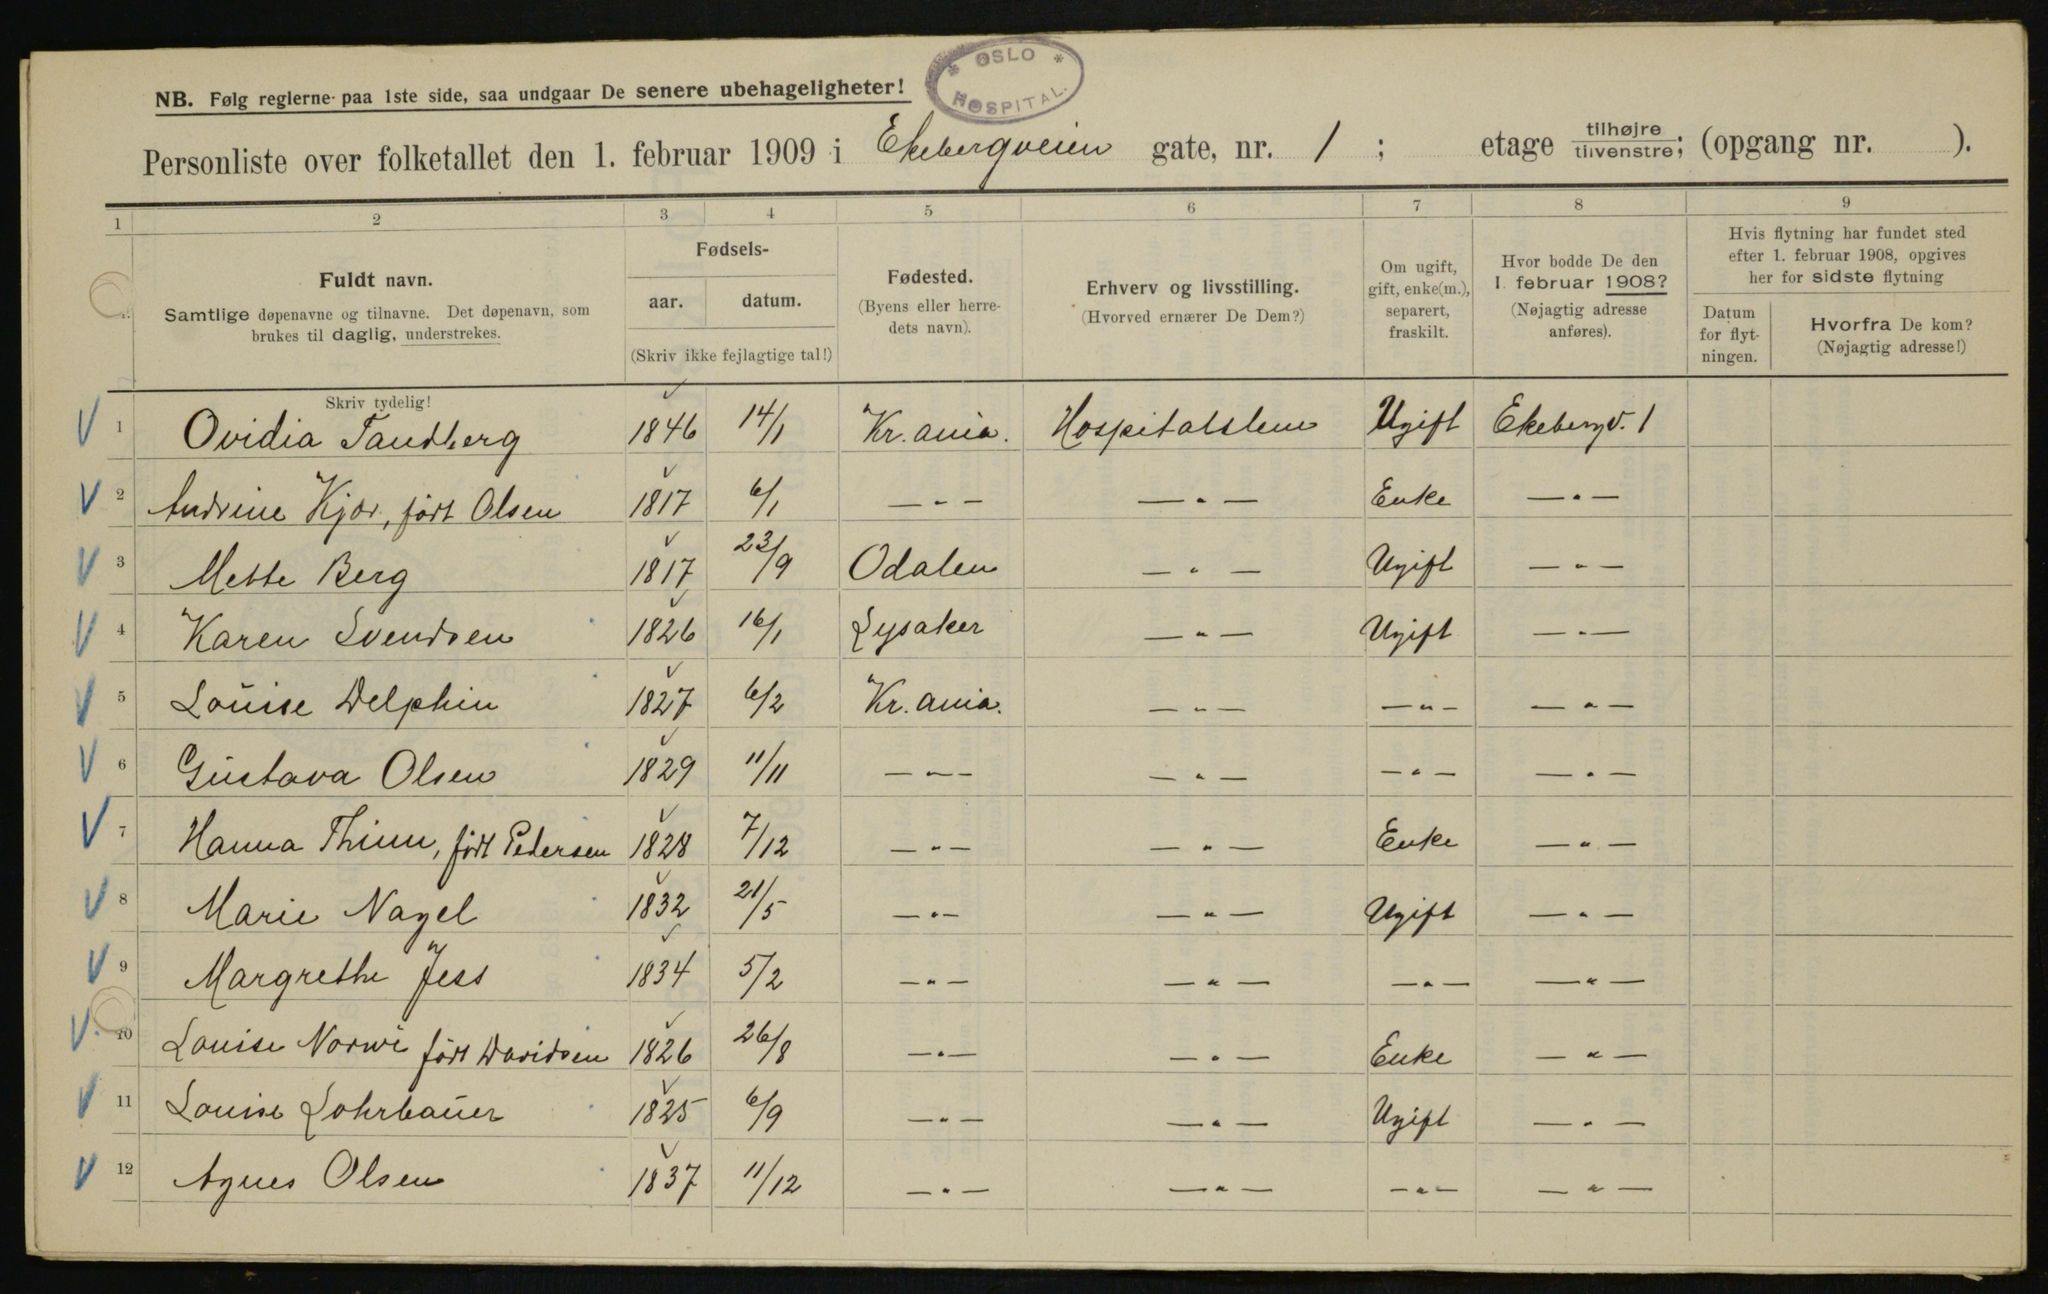 * OSLO *
HOSPITAL.
NB. Følg reglerne paa 1ste side, saa undgaar De senere ubehageligheter!
Personliste over folketallet den 1. februar 1909 i Ekebergveien gate, nr. 1 ; etage tilhøjre/tilvenstre; (opgang nr. ).
1 2 3 4 5 6 7 8 9
Fuldt navn.
Samtlige døpenavne og tilnavne. Det døpenavn, som
brukes til daglig, understrekes.
Skriv tydelig!
Fødsels-
aar. datum.
(Skriv ikke fejlagtige tal!)
Fødested.
(Byens eller herre-
dets navn).
Erhverv og livsstilling.
(Hvorved ernærer De Dem?)
Om ugift,
gift, enke(m.),
separert,
fraskilt.
Hvor bodde De den
1. februar 1908?
(Nøjagtig adresse
anføres).
Hvis flytning har fundet sted
efter 1. februar 1908, opgives
her for sidste flytning
Datum
for flyt-
ningen.
Hvorfra De kom?
(Nøjagtig adresse!)
1 Ovidia Tandberg 1846 14/1 Kr.ania. Hospitalslem Ugift Ekebergv. 1
2 Andrine Kjær, født Olsen 1817 6/1 — " — — " — Enke — " —
3 Mette Berg 1817 23/9 Odalen — " — Ugift — " —
4 Karen Svendsen 1826 16/1 Lysaker — " — Ugift — " —
5 Louise Delphin 1827 6/2 Kr.ania. — " — — " — — " —
6 Gustava Olsen 1829 11/11 — " — — " — — " — — " —
7 Hanna Thinn, født Pedersen 1828 7/12 — " — — " — Enke — " —
8 Marie Nagel 1832 21/5 — " — — " — Ugift — " —
9 Margrethe Jess 1834 5/2 — " — — " — — " — — " —
10 Louise Norwi født Davidsen 1826 26/8 — " — — " — Enke — " —
11 Louise Lohrbauer 1825 6/9 — " — — " — Ugift — " —
12 Agnes Olsen 1837 11/12 — " — — " — — " — — " —